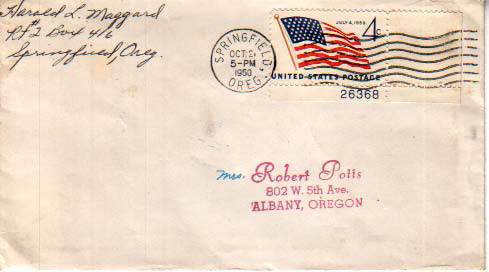 Harold L. Maggard
Rt #2 Box 416
Springfield, Oreg.
SPRINGFIELD
OCT 2
5-PM
1960
OREG.
JULY 4, 1960
4c
UNITED STATES POSTAGE
26368
Mrs. Robert Potts
802 W. 5th Ave.
ALBANY, OREGON